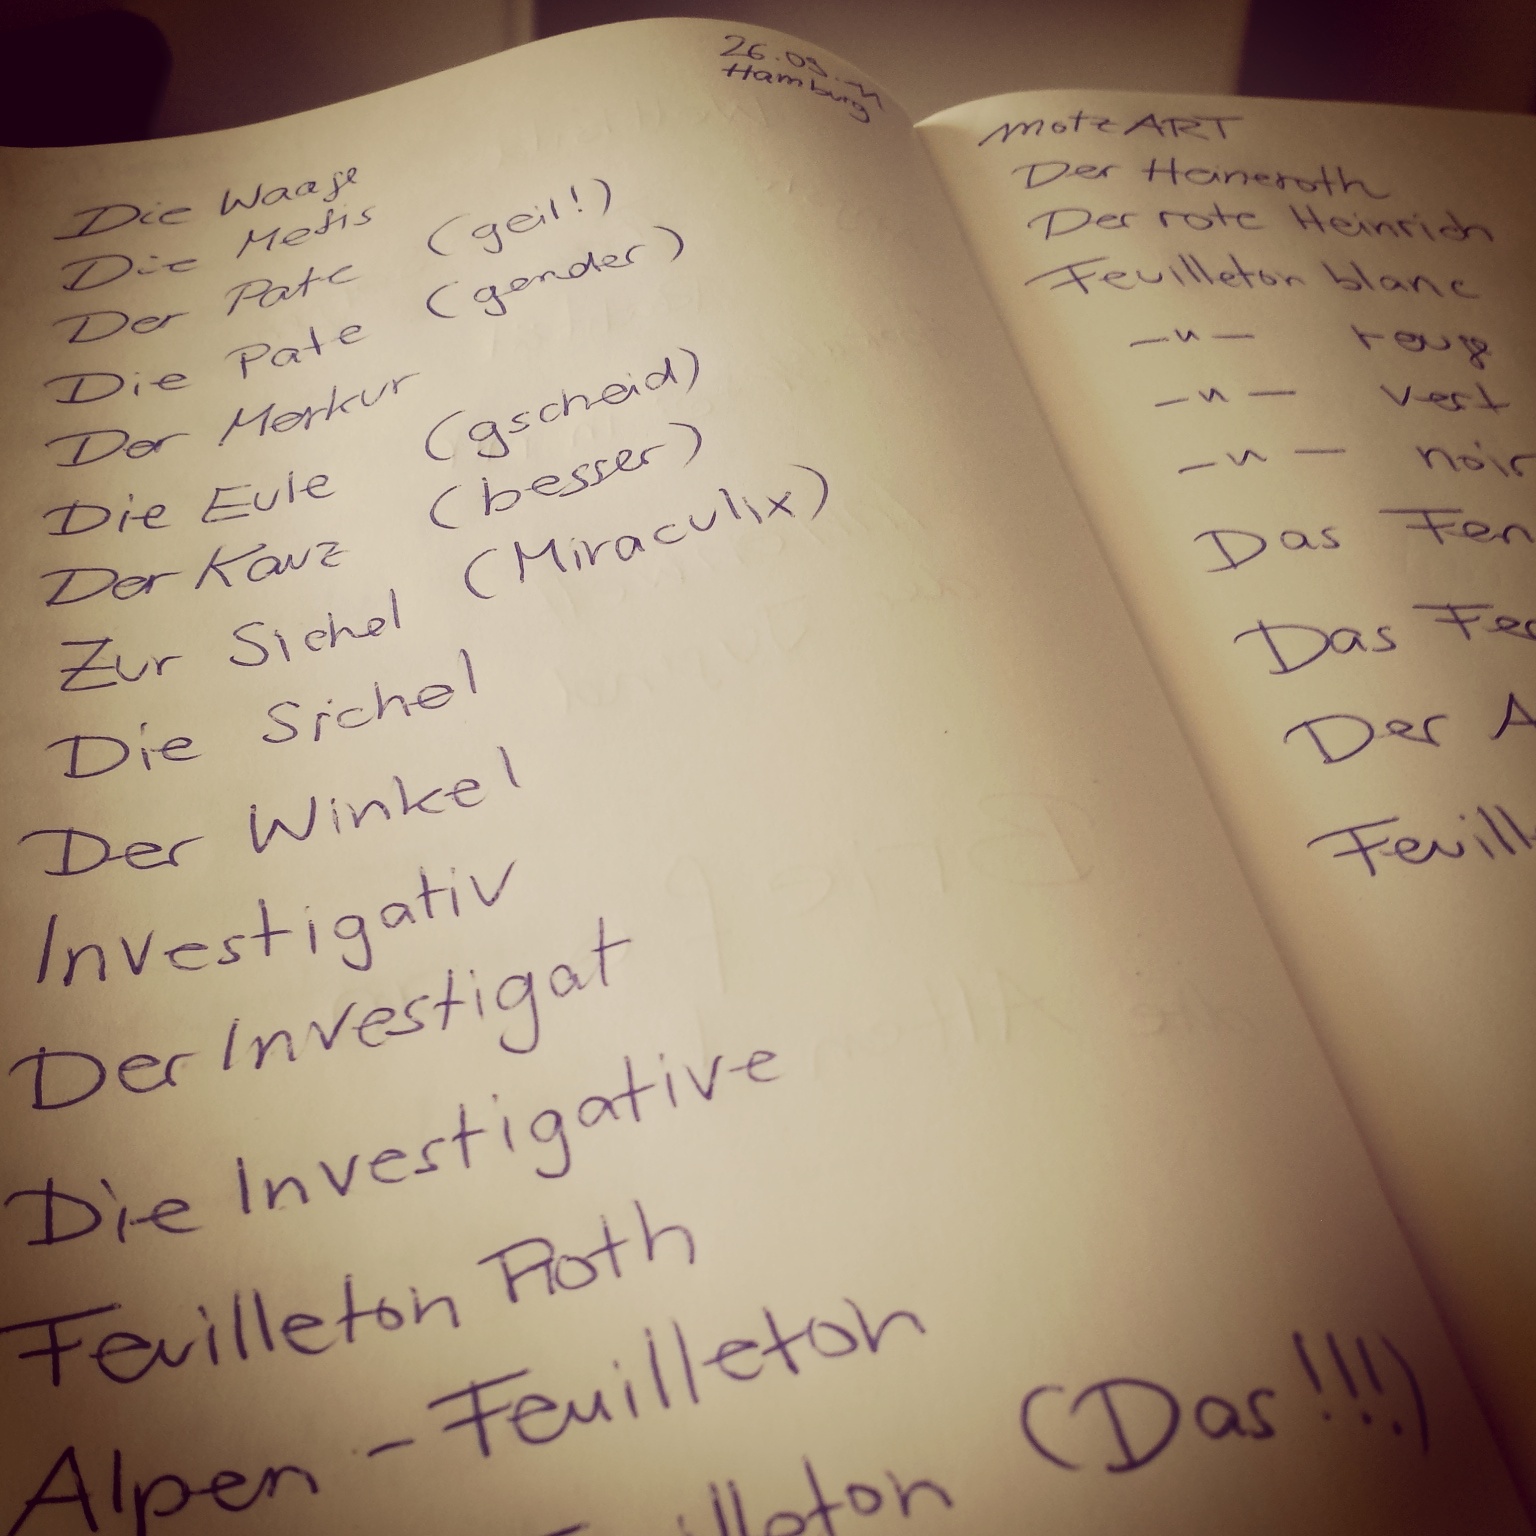 26.09.
Hamburg
Die Waage
Die Metis
Der Pate (geil!)
Die Pate (gender)
Der Merkur
Die Eule (gscheid)
Der Kauz (besser)
Zur Sichel (Miraculix)
Die Sichel
Der Winkel
Investigativ
Der Investigat
Die Investigative
Feuilleton Roth
Alpen-Feuilleton
illeton (Das!!!)
motzART
Der Heineroth
Der rote Heinrich
Feuilleton blanc
—"— rouge
—"— vert
—"— noir
Das Fen
Das Feu
Der A
Feuill